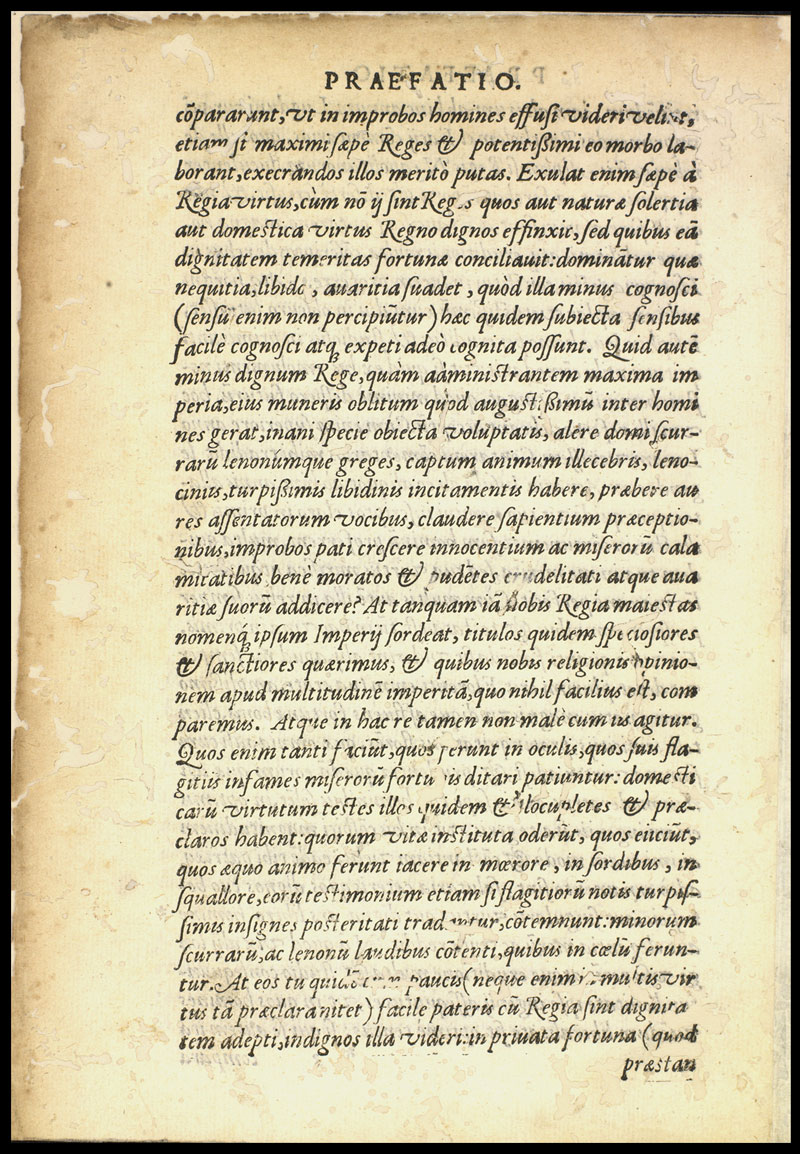 PRAEFATIO.
cōpararunt, vt in improbos homines effusi videri velint,
etiam si maximi sæpè Reges & potentißimi eo morbo la-
borant, execrandos illos meritò putas. Exulat enim sæpè à
Regia virtus, cùm nō ij sint Reges quos aut naturæ solertia
aut domestica virtus Regno dignos effinxit, sed quibus eā
dignitatem temeritas fortunæ conciliauit: dominātur quæ
nequitia, libido, auaritia suadet, quòd illa minus cognosci
(sensu enim non percipiūtur) hæc quidem subiecta sensibus
facilè cognosci atq; expeti adeò cognita possunt. Quid autē
minus dignum Rege, quàm administrantem maxima im
peria, eius muneris oblitum quod augustißimū inter homi
nes gerat, inani specie obiecta voluptatis, alere domi scur-
rarū lenonúmque greges, captum animum illecebris, leno-
ciniis, turpißimis libidinis incitamentis habere, præbere au
res assentatorum vocibus, claudere sapientium præceptio-
nibus, improbos pati crescere innocentium ac miserorū cala
mitatibus, benè moratos & pudētes crudelitati atque aua
ritiæ suorū addicere? At tanquam iā nobis Regia maiestas
nomenq́; ipsum Imperij sordeat, titulos quidem speciosiores
& sanctiores quærimus, & quibus nobis religionis opinio-
nem apud multitudinē imperitā, quo nihil facilius est, com
paremus. Atque in hac re tamen non malè cum iis agitur.
Quos enim tanti faciūt, quos ferunt in oculis, quos suis fla-
gitiis infames miserorū fortunis ditari patiuntur: domesti
carū virtutum testes illos quidem & locupletes & præ-
claros habent: quorum vitæ instituta oderūt, quos eiiciūt,
quos æquo animo ferunt iacere in mœrore, in sordibus, in
squallore, eorū testimonium etiam si flagitiorū notis turpis-
simis insignes posteritati tradantur, cōtemnunt: minorum
scurrarū, ac lenonū laudibus cōtenti, quibus in cœlū ferun-
tur. At eos tu quidē cum paucis (neque enim in multis vir
tus tā præclara nitet) facile pateris cū Regia sint dignita
tem adepti, indignos illa videri: in priuata fortuna (quod
præstan